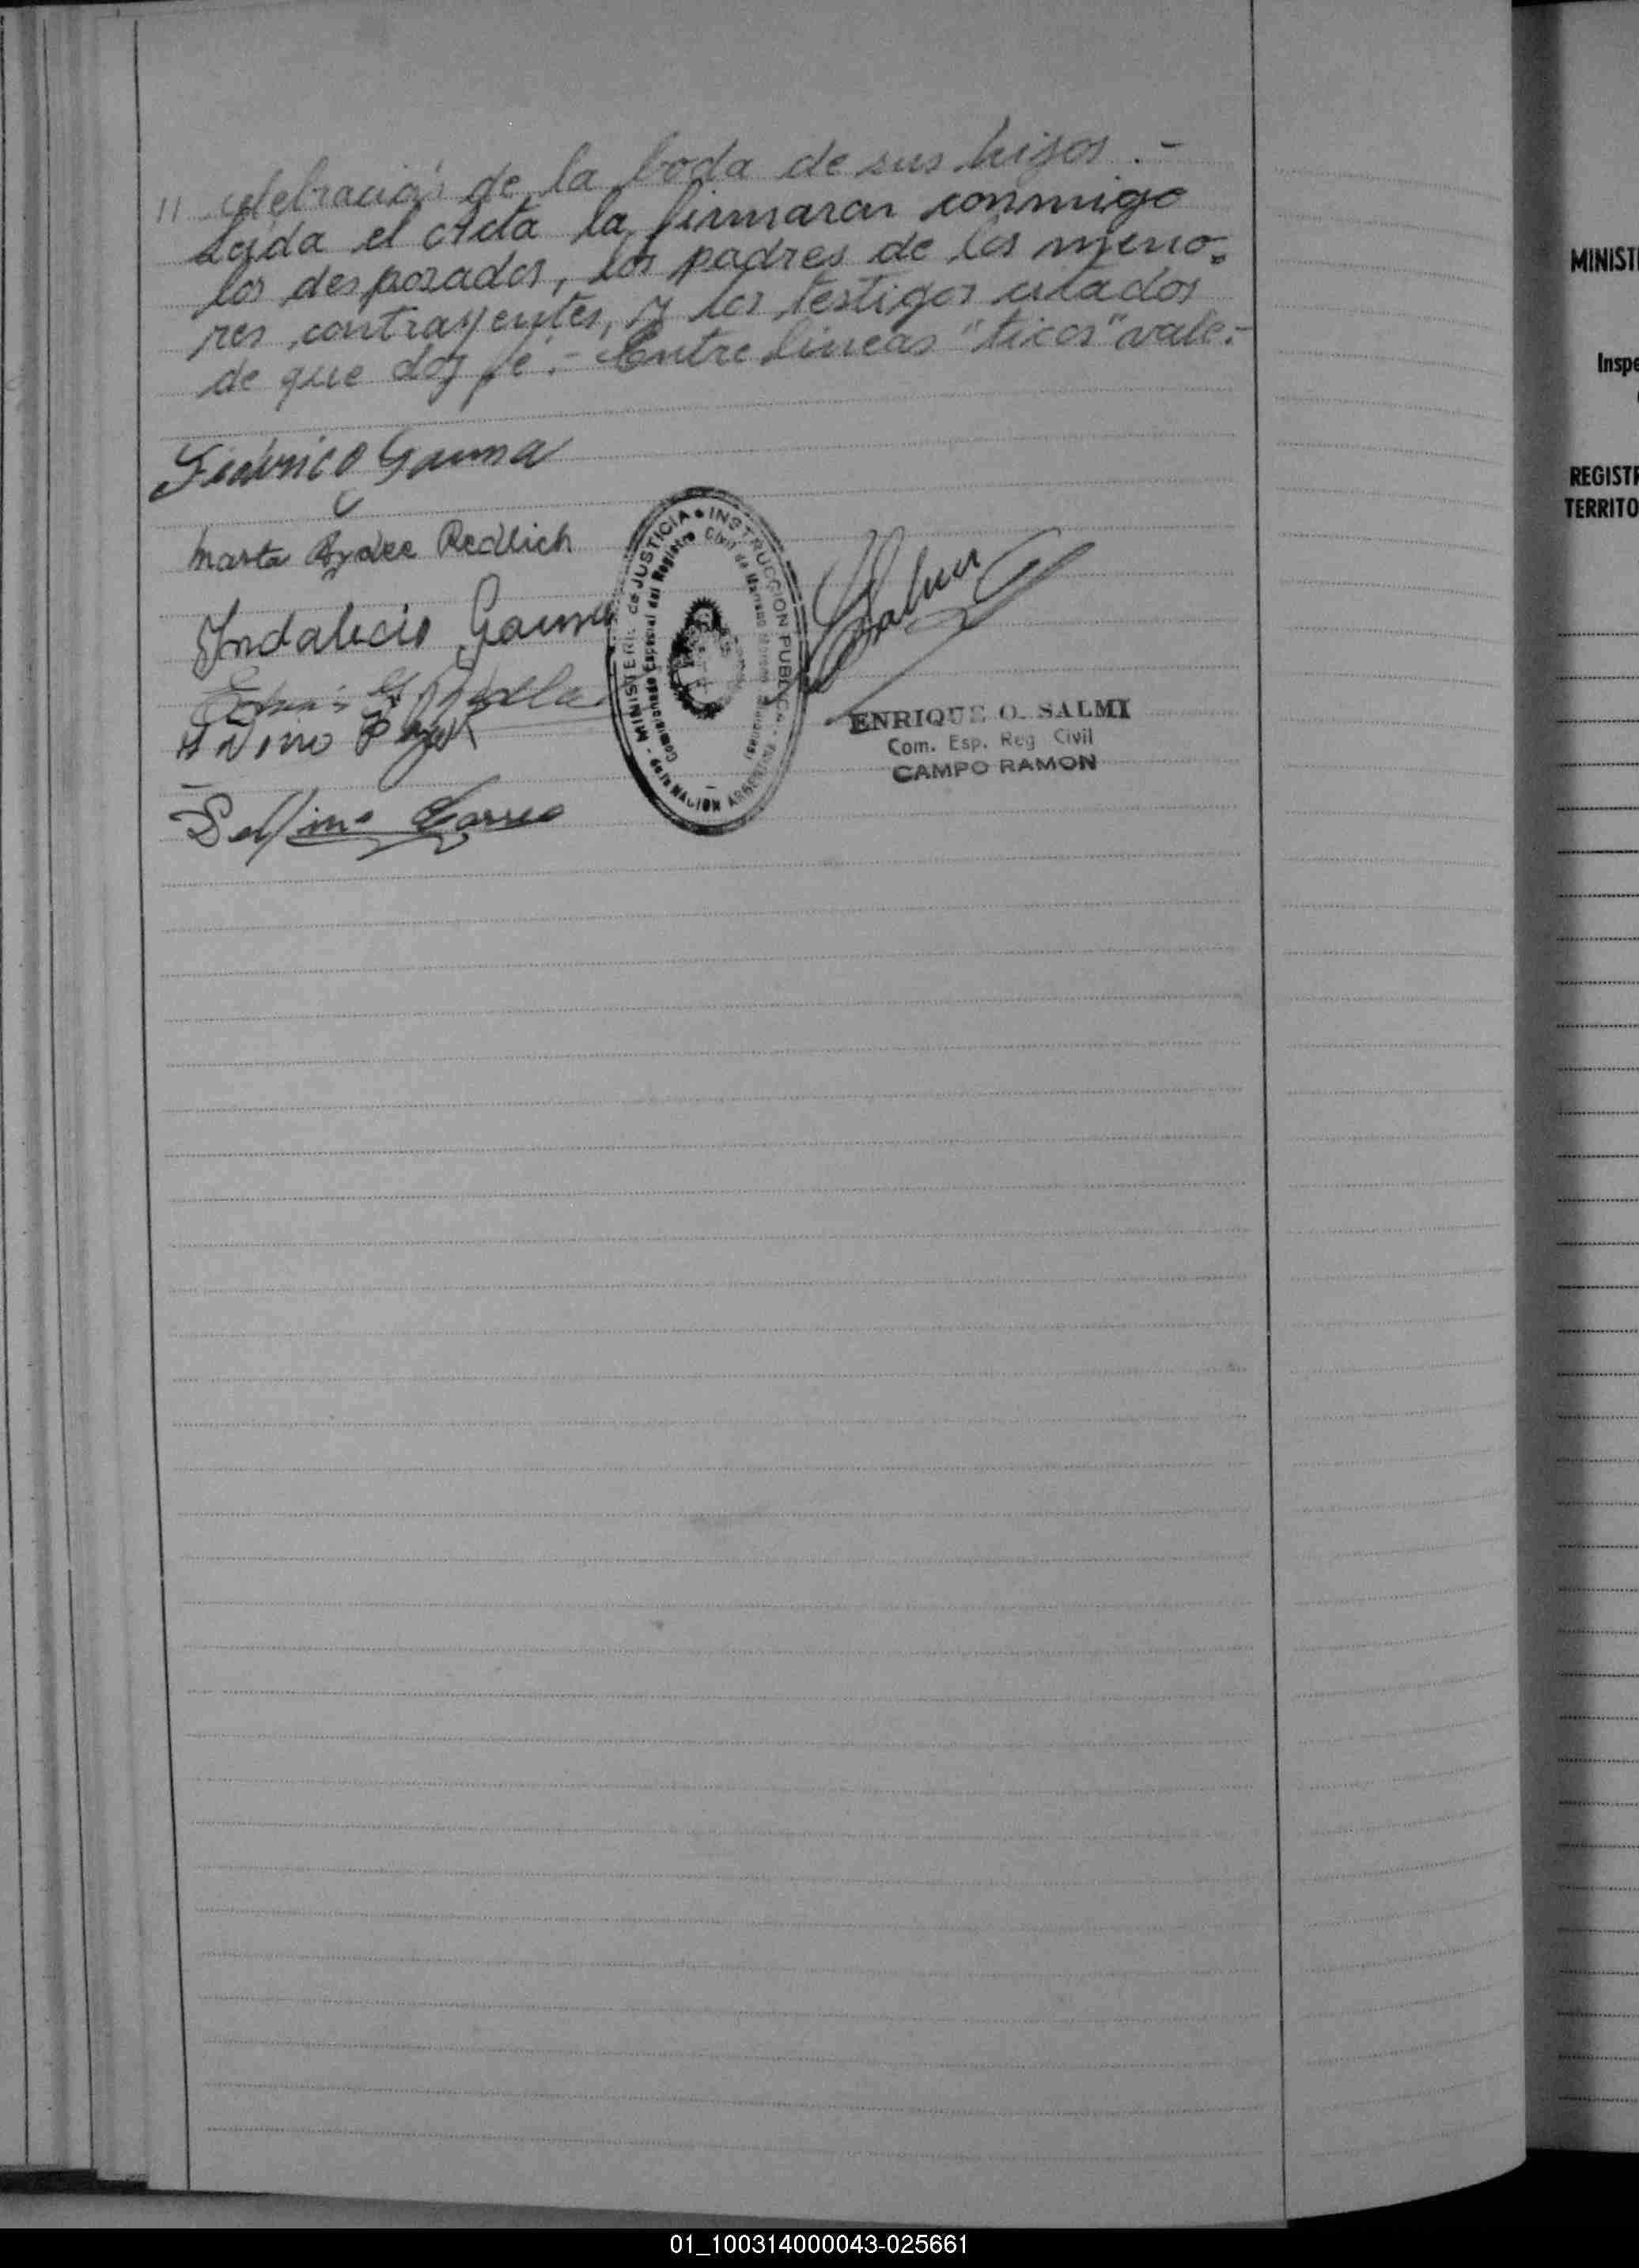 " celebración de la boda de sus hijos .-
Leída el acta la firmaron conmigo
los desposados, los padres de los meno-
res contrayentes, y los testigos citados
de que doy fé.- Entre lineas "ticos" vale.-
Federico Gauna
Marta Aydee Redlich
Indalecio Gauna
Delfino
MINISTERIO de JUSTICIA e INSTRUCCION PUBLICA - de la NACION ARGENTINA
Comisionado Especial del Registro Civil de
ENRIQUE O. SALMI
Com. Esp. Reg Civil
CAMPO RAMON
MINIST
Inspe
REGISTR
TERRITO
01_100314000043-025661